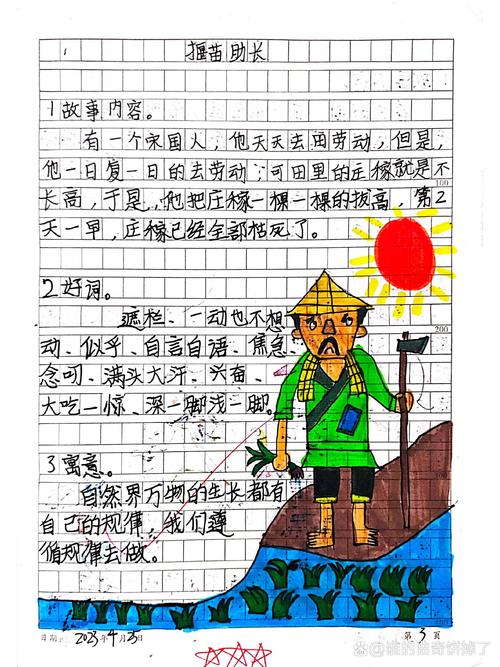 揠苗助长
1故事内容。
有一个宋国人，他天天去田劳动，但是，
他一日复一日的去劳动；可田里的庄稼就是不
长高，于是，他把庄稼一棵一棵的拔高，第2
天一早，庄稼已经全部枯死了。
100
2好词。
遮拦、一动也不想
200
动、似乎、自言自语、焦急、
念叨、满头大汗、兴奋、
大吃一惊、深一脚浅一脚。
3寓意。
自然界万物的生长都有
自己的规律，我们遵
循规律去做。
日期： 2023年4月25日
第 3 页
@谁的曲奇饼掉了